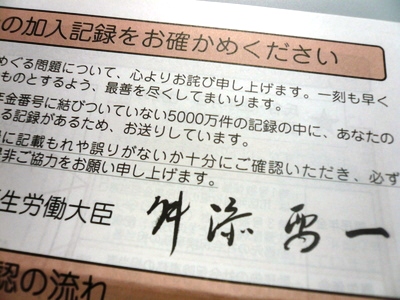 の加入記録をお確かめください
めぐる問題について、心よりお詫び申し上げます。一刻も早く
ものとするよう、最善を尽くしてまいります。
年金番号に結びついていない5000万件の記録の中に、あなたの
る記録があるため、お送りしています。
に記載もれや誤りがないか十分にご確認いただき、必ず
非ご協力をお願い申し上げます。
生労働大臣 舛添要一
認の流れ